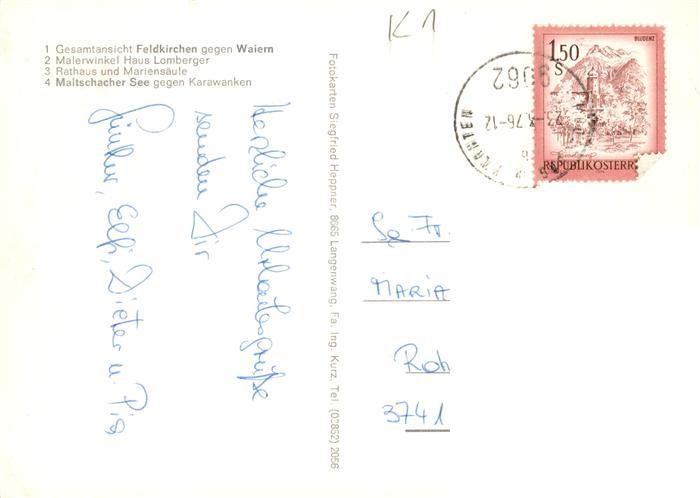 K1
1 Gesamtansicht Feldkirchen gegen Waiern
2 Malerwinkel Haus Lomberger
3 Rathaus und Mariensäule
4 Maltschacher See gegen Karawanken
Herzliche Urlaubsgrüße
senden Dir
Günther, Elfi, Dieter u.
Fotokarten Siegfried Heppner, 8665 Langenwang, Fa. Ing. Kurz, Tel. (03852) 2056
BLUDENZ
1.50
S
REPUBLIK ÖSTERR
9062
.76-12
Fr.
MARIA
Roh
3741